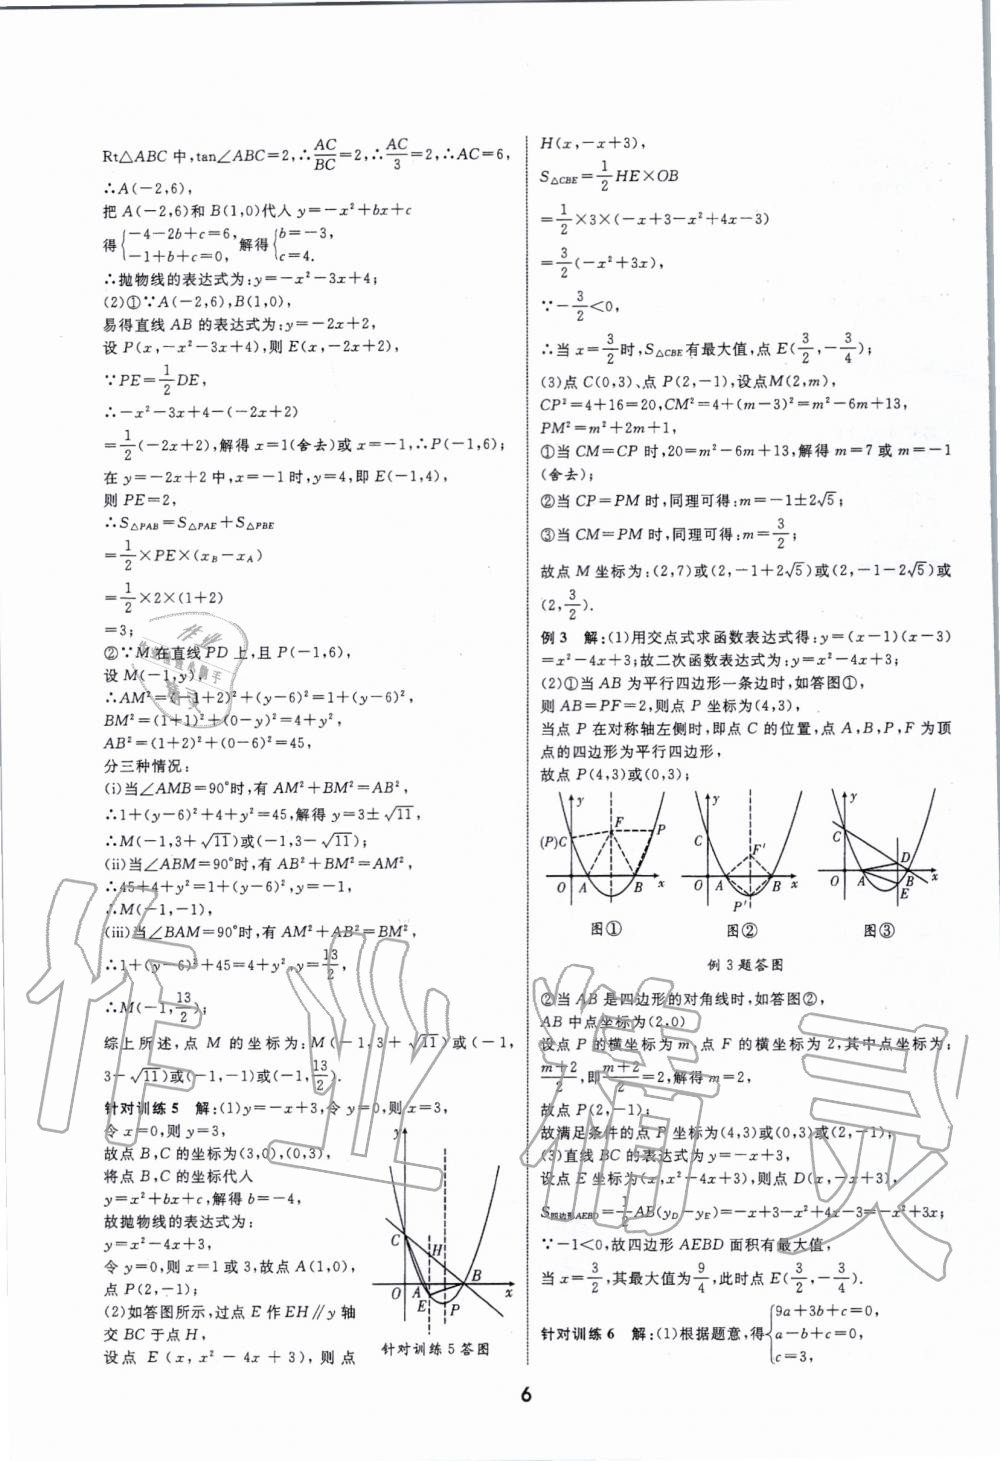 Rt△ABC 中,tan∠ABC=2,∴AC/BC=2,∴AC/3=2,∴AC=6,
∴A(-2,6),
把 A(-2,6)和 B(1,0)代人 y=-x²+bx+c
得{-4-2b+c=6, -1+b+c=0, 解得{b=-3, c=4.
∴抛物线的表达式为:y=-x²-3x+4;
(2)①∵A(-2,6),B(1,0),
易得直线 AB 的表达式为:y=-2x+2,
设 P(x,-x²-3x+4),则 E(x,-2x+2),
∵PE=1/2DE,
∴-x²-3x+4-(-2x+2)
=1/2(-2x+2),解得 x=1(舍去)或 x=-1,∴P(-1,6);
在 y=-2x+2 中,x=-1 时,y=4,即 E(-1,4),
则 PE=2,
∴S△PAB=S△PAE+S△PBE
=1/2×PE×(xB-xA)
=1/2×2×(1+2)
=3;
②∵M 在直线 PD 上,且 P(-1,6),
设 M(-1,y),
∴AM²=(-1+2)²+(y-6)²=1+(y-6)²,
BM²=(1+1)²+(0-y)²=4+y²,
AB²=(1+2)²+(0-6)²=45,
分三种情况:
(i)当∠AMB=90°时,有 AM²+BM²=AB²,
∴1+(y-6)²+4+y²=45,解得 y=3±√11,
∴M(-1,3+√11)或(-1,3-√11);
(ii)当∠ABM=90°时,有 AB²+BM²=AM²,
∴45+4+y²=1+(y-6)²,y=-1,
∴M(-1,-1),
(iii)当∠BAM=90°时,有 AM²+AB²=BM²,
∴1+(y-6)²+45=4+y²,y=13/2,
∴M(-1,13/2);
综上所述,点 M 的坐标为:M(-1,3+√11)或(-1,
3-√11)或(-1,-1)或(-1,13/2).
针对训练 5 解:(1)y=-x+3,令 y=0,则 x=3,
令 x=0,则 y=3,
故点 B,C 的坐标为(3,0),(0,3),
将点 B,C 的坐标代人
y=x²+bx+c,解得 b=-4,
故抛物线的表达式为:
y=x²-4x+3,
令 y=0,则 x=1 或 3,故点 A(1,0),
点 P(2,-1);
(2)如答图所示,过点 E 作 EH∥y 轴
交 BC 于点 H,
设点 E(x,x²-4x+3),则点
y
C
H
O
A
B
x
E
P
针对训练 5 答图
H(x,-x+3),
S△CBE=1/2HE×OB
=1/2×3×(-x+3-x²+4x-3)
=3/2(-x²+3x),
∵-3/2<0,
∴当 x=3/2时,S△CBE有最大值,点 E(3/2,-3/4);
(3)点 C(0,3)、点 P(2,-1),设点M(2,m),
CP²=4+16=20,CM²=4+(m-3)²=m²-6m+13,
PM²=m²+2m+1,
①当 CM=CP 时,20=m²-6m+13,解得 m=7 或 m=-1
(舍去);
②当 CP=PM 时,同理可得:m=-1±2√5;
③当 CM=PM 时,同理可得:m=3/2;
故点 M 坐标为:(2,7)或(2,-1+2√5)或(2,-1-2√5)或
(2,3/2).
例 3 解:(1)用交点式求函数表达式得:y=(x-1)(x-3)
=x²-4x+3;故二次函数表达式为:y=x²-4x+3;
(2)①当 AB 为平行四边形一条边时,如答图①,
则 AB=PF=2,则点 P 坐标为(4,3),
当点 P 在对称轴左侧时,即点 C 的位置,点 A,B,P,F 为顶
点的四边形为平行四边形,
故点 P(4,3)或(0,3);
y
F
P
(P)C
O A B x
图①
y
C
F′
O A B x
P′
图②
y
C
D
O A B x
E
图③
例 3 题答图
②当 AB 是四边形的对角线时,如答图②,
AB 中点坐标为(2,0)
设点 P 的横坐标为 m,点 F 的横坐标为 2,其中点坐标为:
m+2/2,即m+2/2=2,解得 m=2,
故点 P(2,-1);
故满足条件的点 P 坐标为(4,3)或(0,3)或(2,-1);
(3)直线 BC 的表达式为 y=-x+3,
设点 E 坐标为(x,x²-4x+3),则点 D(x,-x+3),
S四边形AEBD=1/2AB(yD-yE)=-x+3-x²+4x-3=-x²+3x;
∵-1<0,故四边形 AEBD 面积有最大值,
当 x=3/2,其最大值为9/4,此时点 E(3/2,-3/4).
针对训练 6 解:(1)根据题意,得{9a+3b+c=0, a-b+c=0, c=3,
6
作业精灵